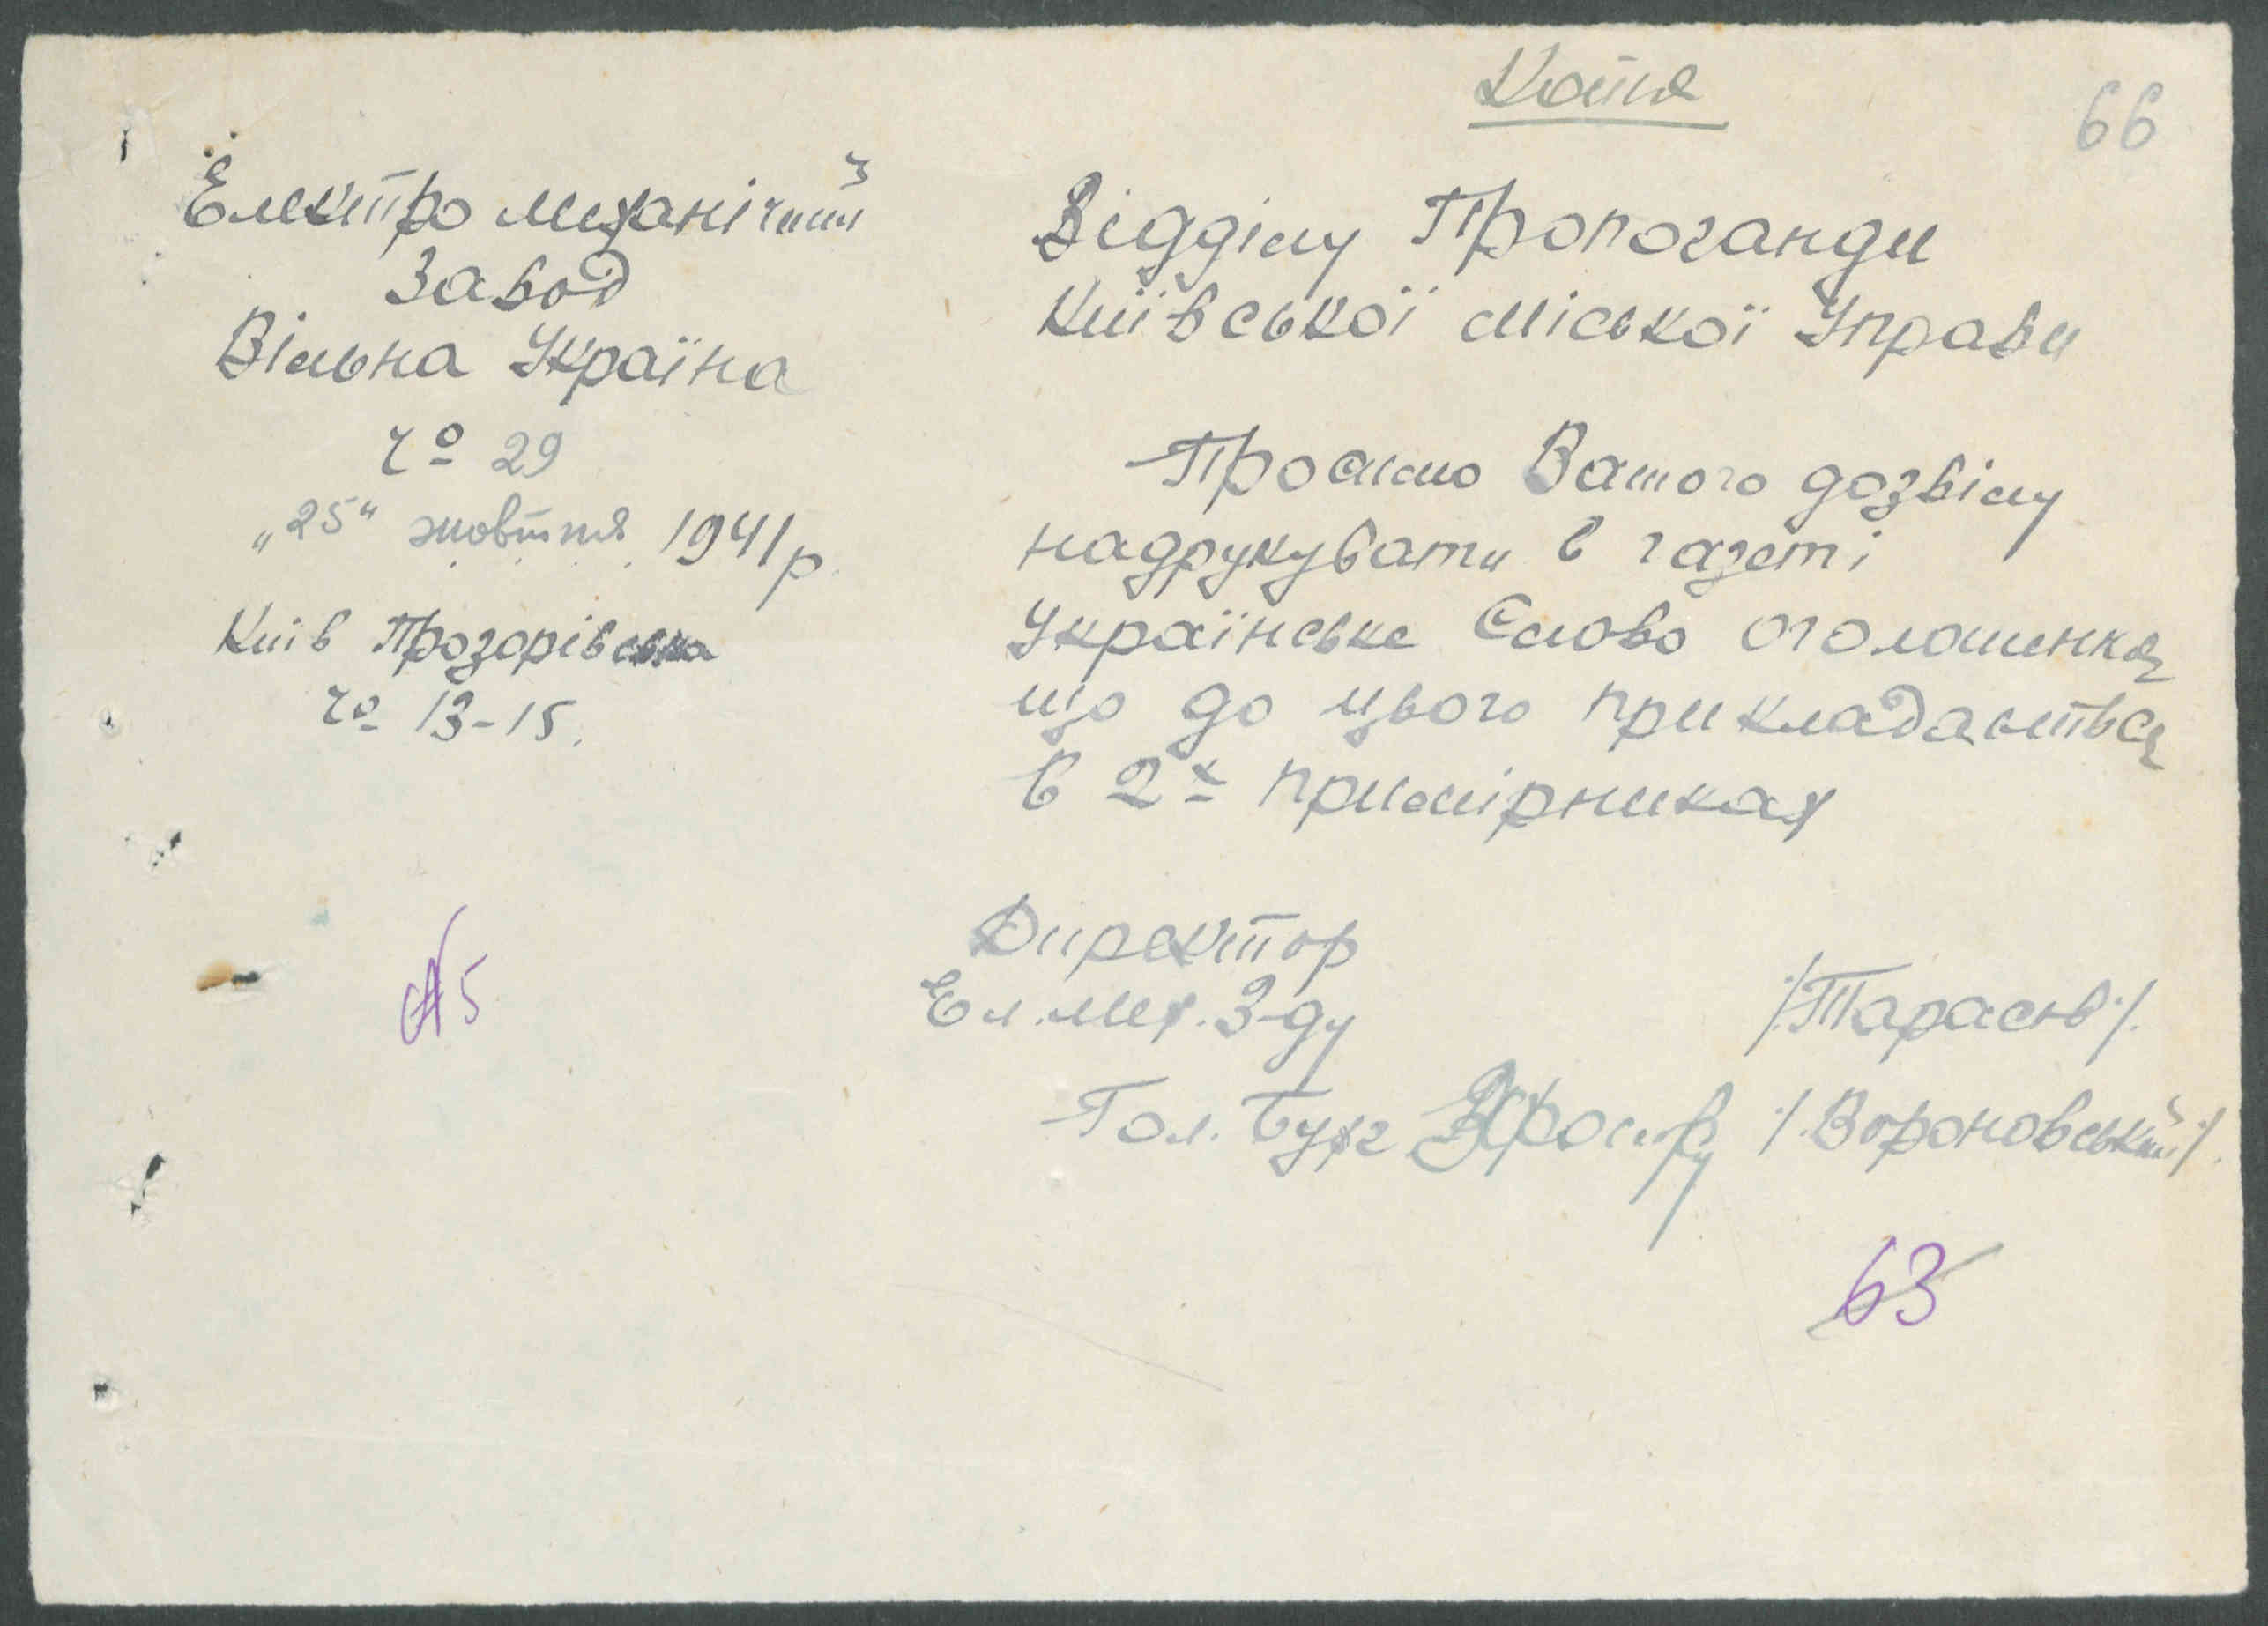 Копія
66
Електро механічний
Завод
Вільна Україна
ч⁰ 29
„25“ жовтня 1941 р.
Київ Прозорівська
ч⁰ 13-15.
Відділу Пропоганди
Київської Міської Управи
Просимо Вашого дозвілу
надрукувати в газеті
Українське Слово оголошення,
що до цього прикладається
в 2х примірниках
Директор
Ел. Мех. З-ду /Тарасов/.
Гол. Бухг /.Вороновський/.
5
63